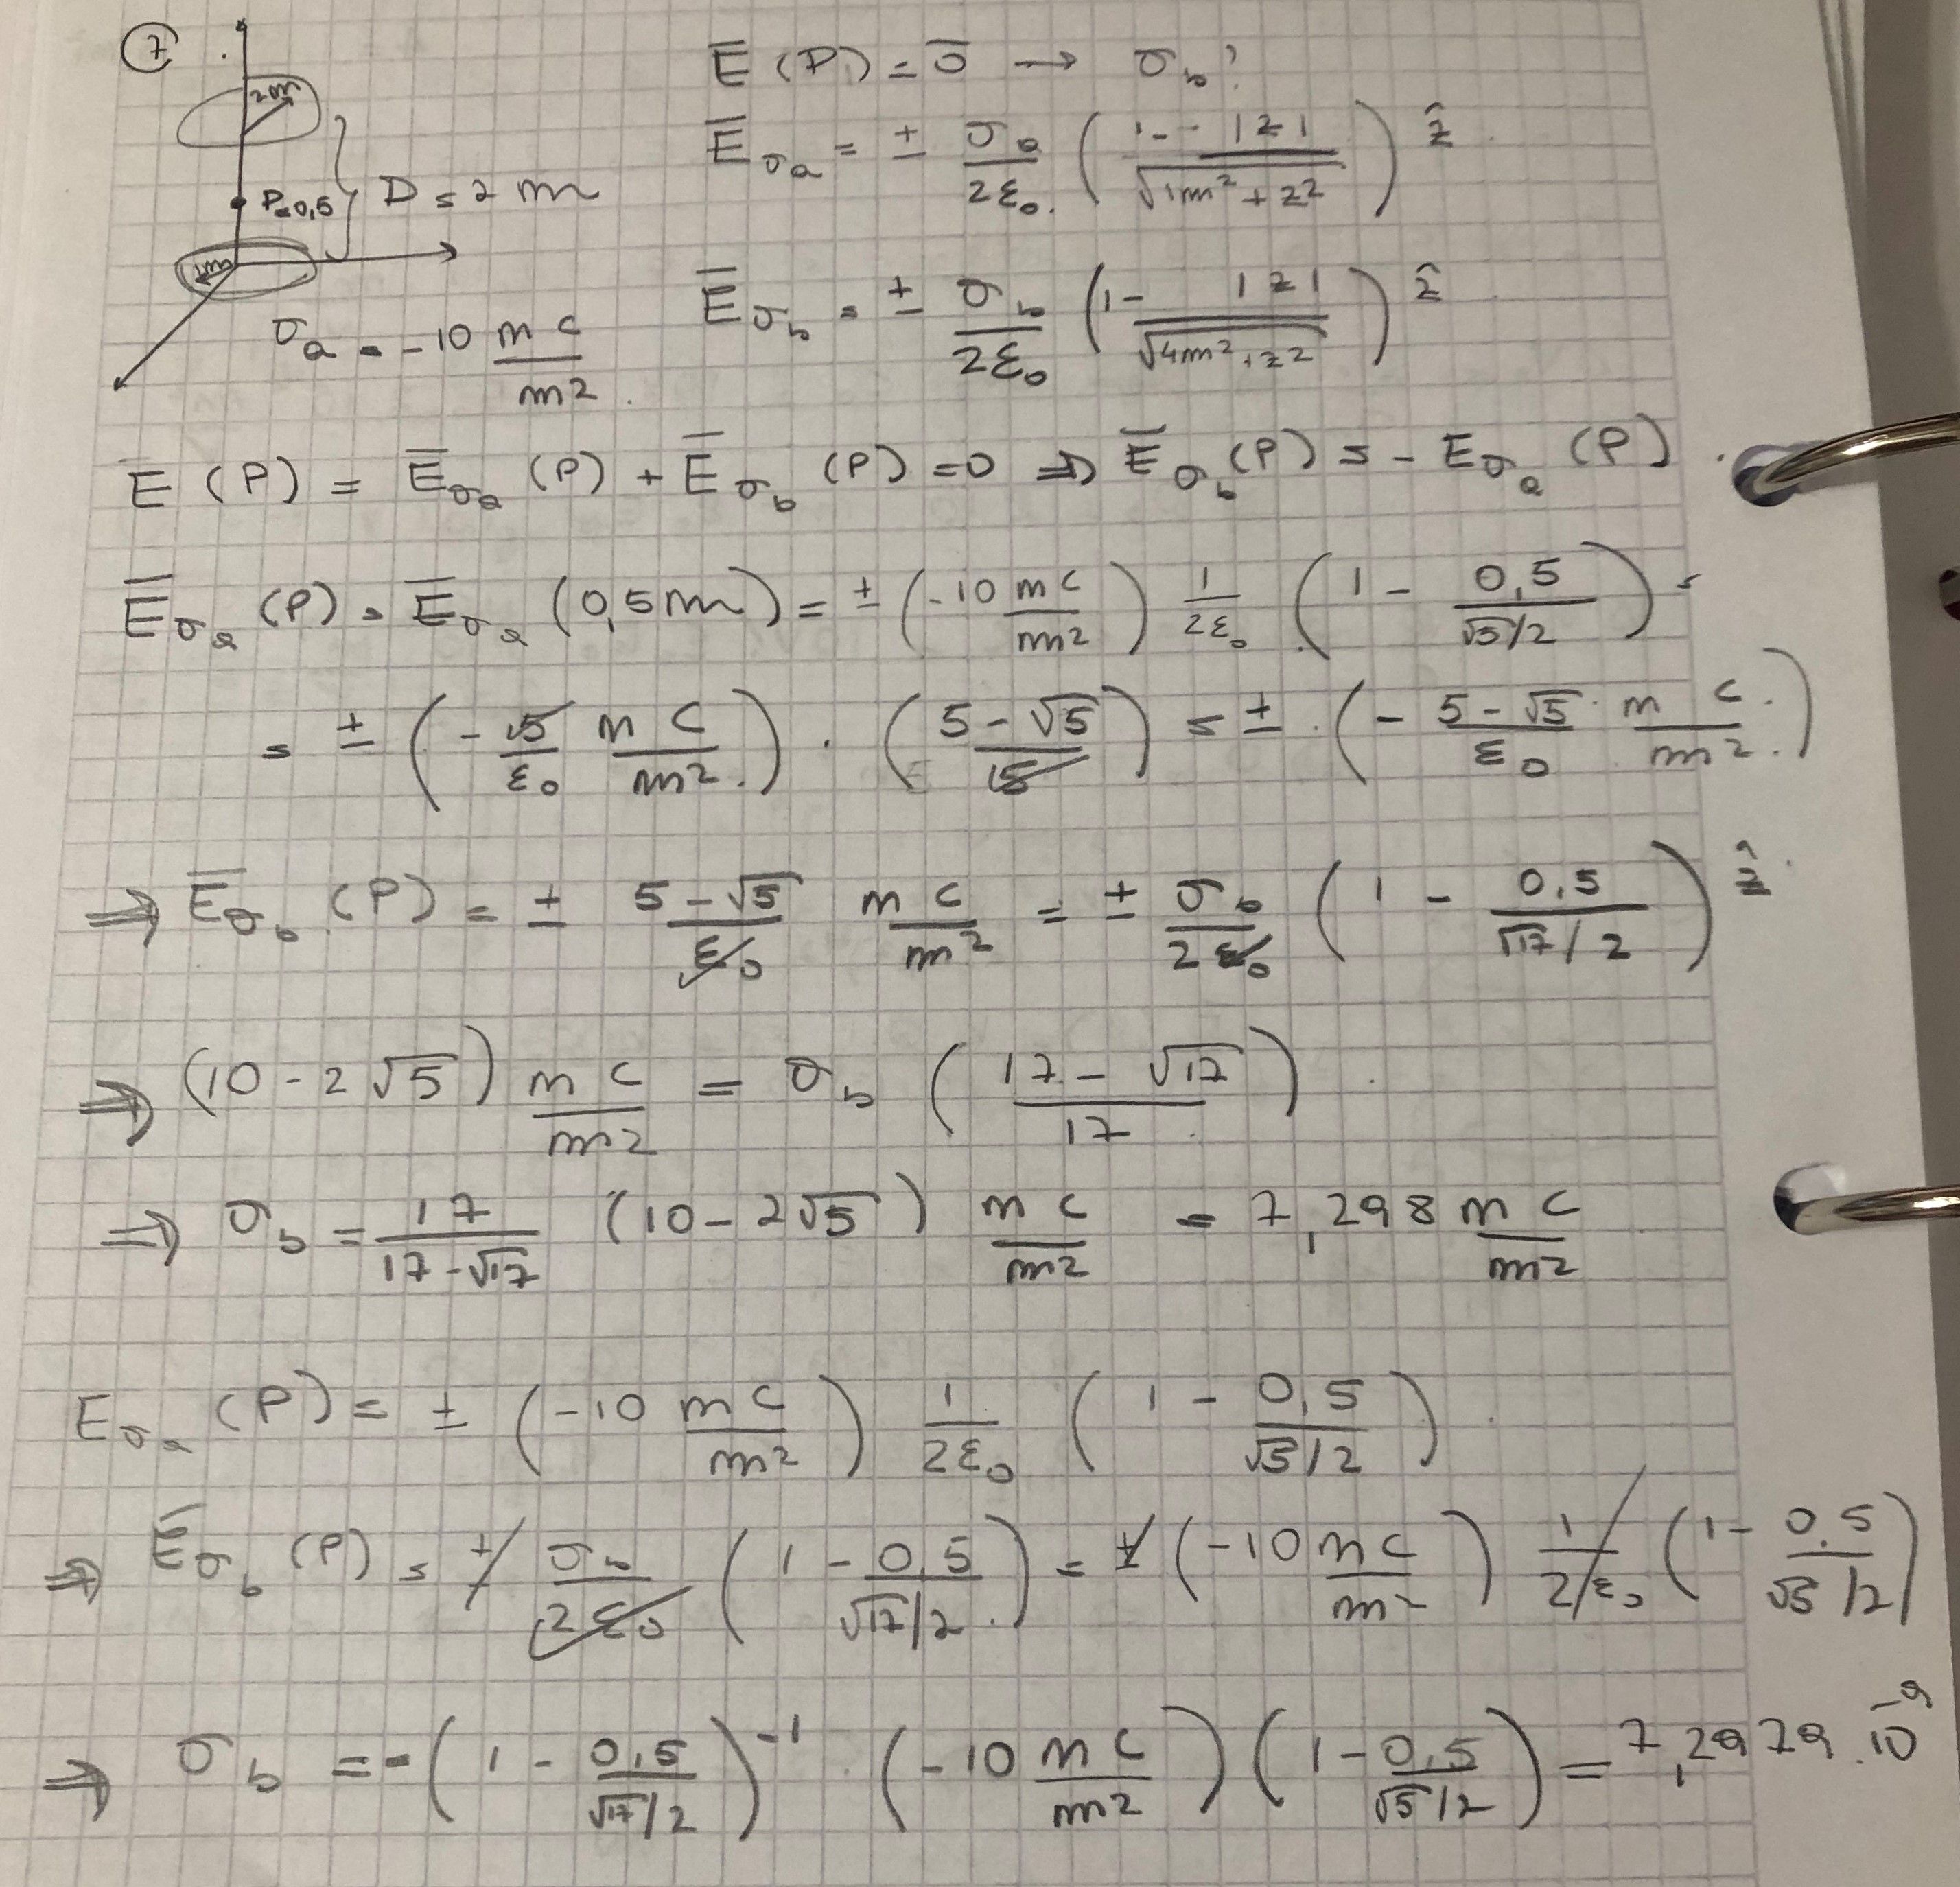 7
2m
P=0,5
D = 2 m
1m
σa = -10 nC/m2
Ē(P) = 0̄ → σb?
Ēσa = ± σa/2ε0 (1 - |z|/√(1m² + z²)) ẑ
Ēσb = ± σb/2ε0 (1 - |z|/√(4m² + z²)) ẑ
E(P) = Ēσa(P) + Ēσb(P) = 0 ⇒ Ēσb(P) = -Eσa(P)
Ēσa(P) = Ēσa(0,5m) = ± (-10 nC/m²) 1/2ε0 (1 - 0,5/√5/2) =
= ± (-5/ε0 nC/m²) · (5-√5/5) = ± (- 5-√5/ε0 nC/m²)
⇒ Ēσb(P) = ± 5-√5/ε0 nC/m² = ± σb/2ε0 (1 - 0,5/√17/2) ẑ
⇒ (10 - 2√5) nC/m² = σb (17 - √17/17)
⇒ σb = 17/17-√17 (10 - 2√5) nC/m² = 7,298 nC/m²
Eσa(P) = ± (-10 nC/m²) 1/2ε0 (1 - 0,5/√5/2)
⇒ Ēσb(P) = ± σb/2ε0 (1 - 0,5/√17/2) = ± (-10 nC/m²) 1/2ε0 (1 - 0,5/√5/2)
⇒ σb = -(1 - 0,5/√17/2)⁻¹ · (-10 nC/m²) (1 - 0,5/√5/2) = 7,2979 · 10⁻⁹